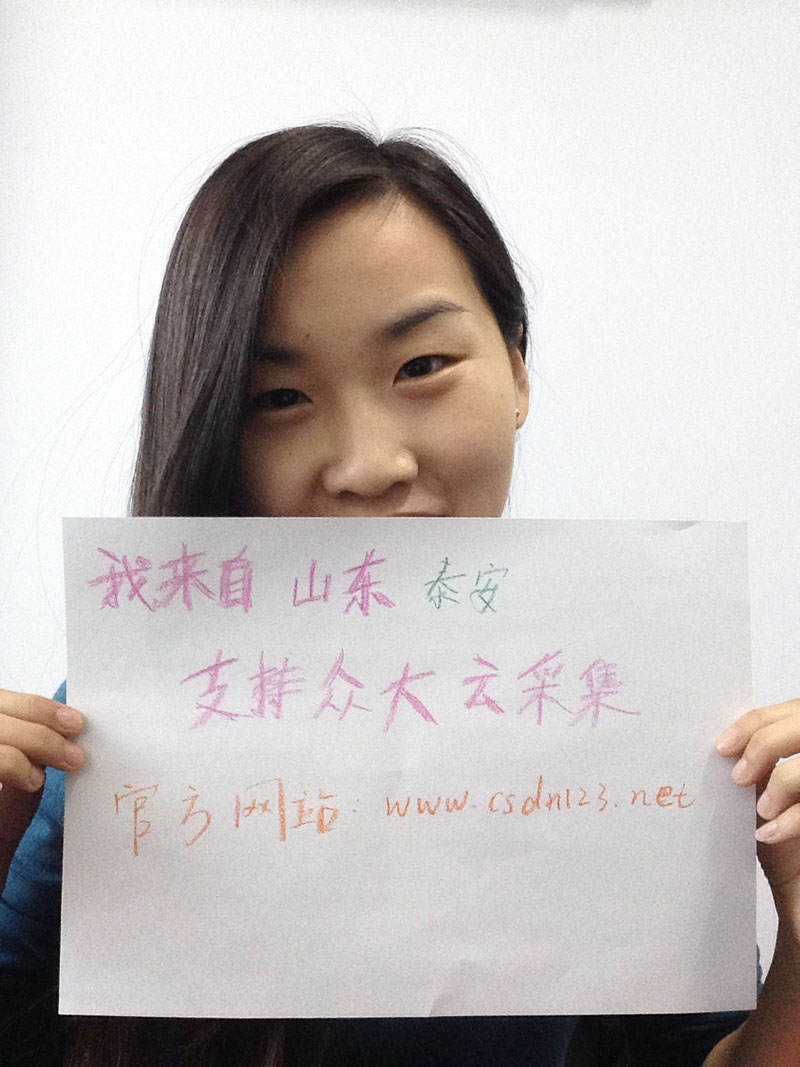 我来自 山东 泰安
支持众大云采集
官方网站：www.csdn123.net